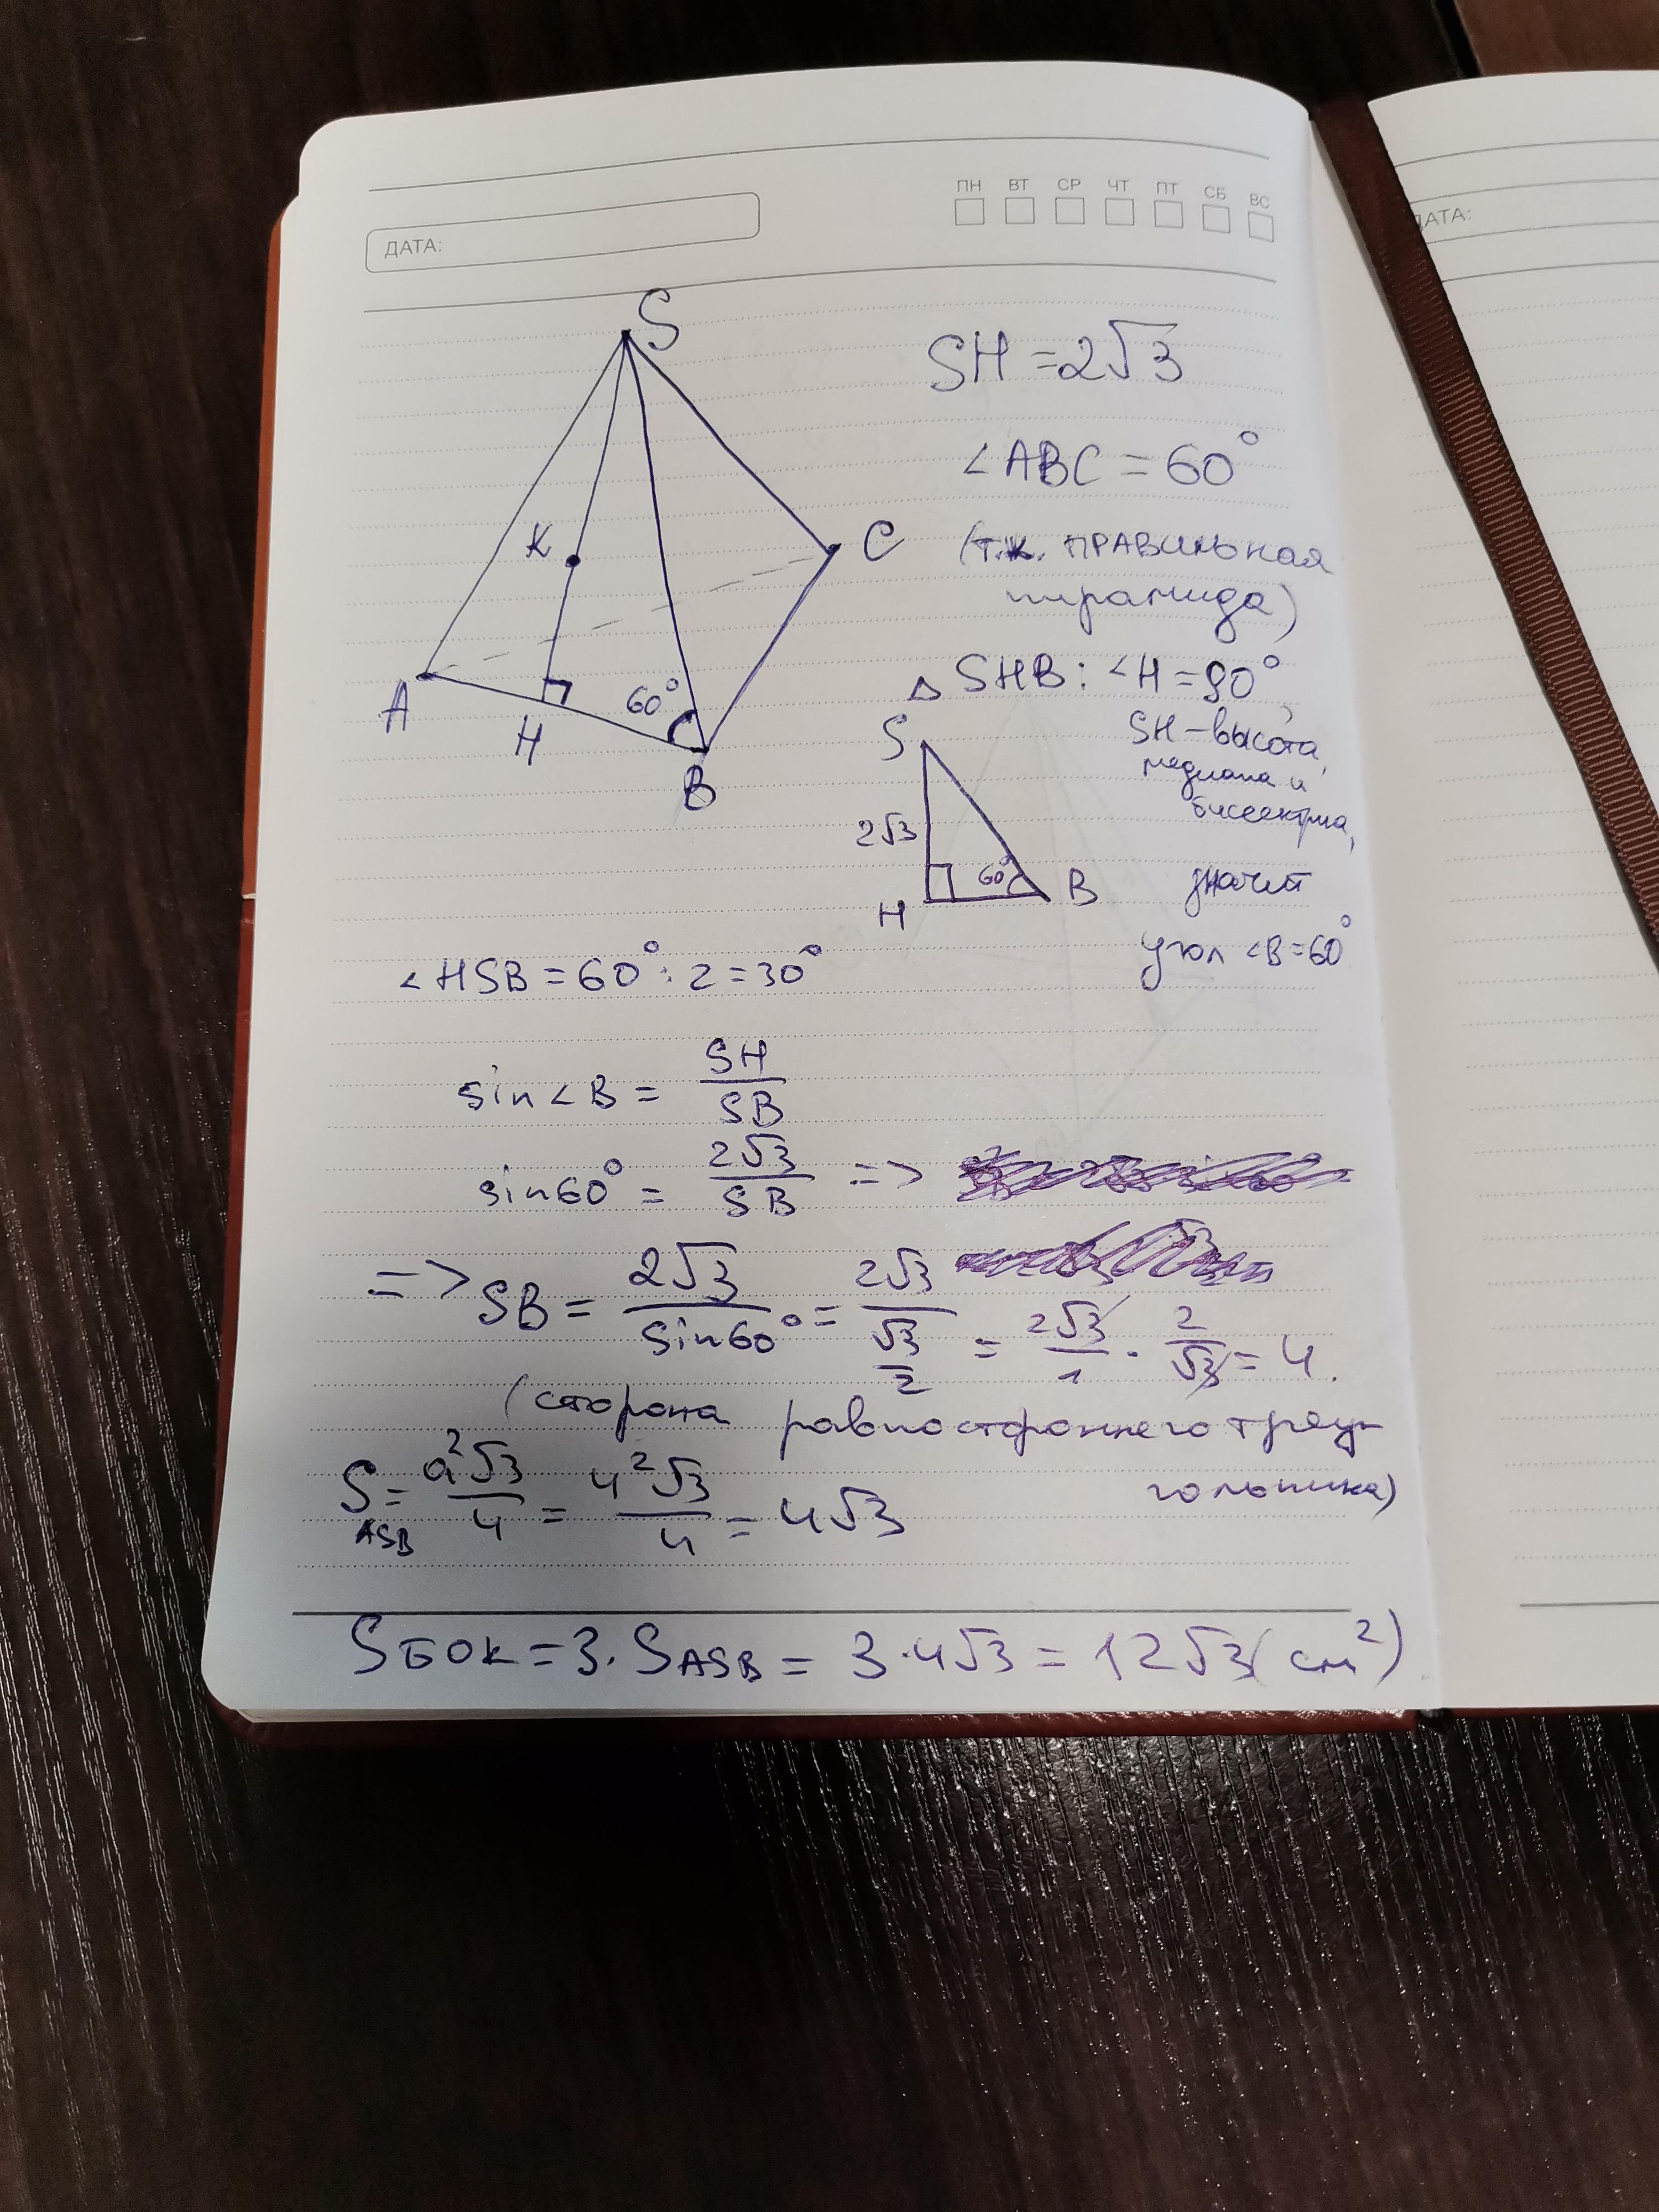 ПН ВТ СР ЧТ ПТ СБ ВС
ДАТА:
ДАТА:
S
SH = 2√3
∠ABC = 60°
K
C
(т.к. правильная
пирамида)
△ SHB: ∠H = 90°,
A
60°
H
B
S
SH – высота,
медиана и
биссектриса,
2√3
60°
H
B
значит
угол ∠B = 60°
∠HSB = 60° : 2 = 30°
sin∠B = SH/SB
sin60° = 2√3/SB =>
=> SB = 2√3/sin60° = 2√3/(√3/2) = 2√3/1 · 2/√3 = 4.
(сторона равностороннего треу-
гольника)
S ASB = a²√3/4 = 4²√3/4 = 4√3
Sбок = 3 · SASB = 3 · 4√3 = 12√3 (см²)